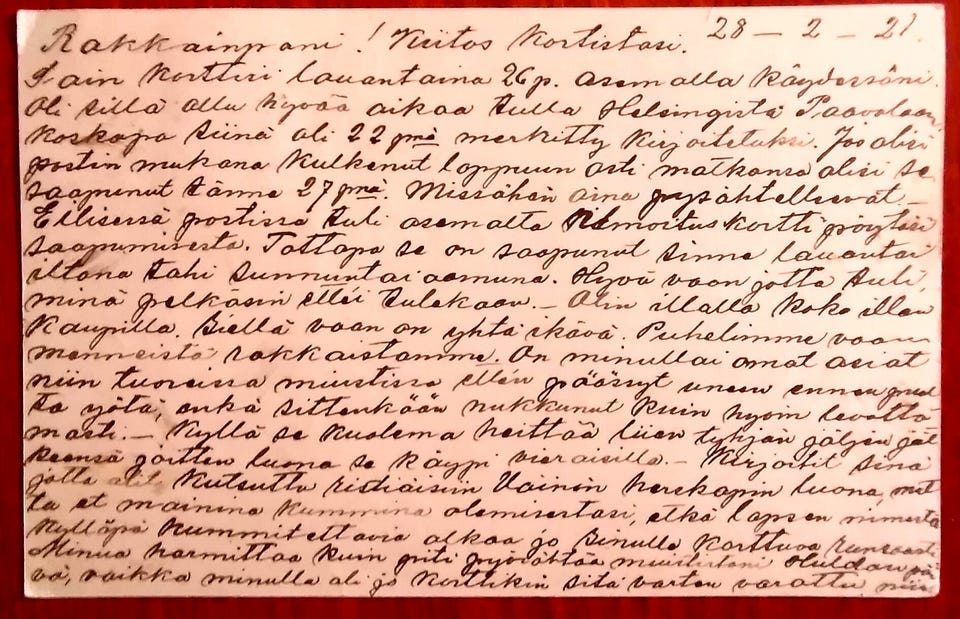 28 – 2 – 21.
Rakkainpani! Kiitos kortistasi.
Sain korttisi lauantaina 26 p. asemalla käydessäni.
Oli sillä ollu hyvää aikaa tulla Helsingistä Paavolaan,
koskapa siinä oli 22 pnä merkitty kirjoitetuksi. Jos olisi
postin mukana kulkenut loppuun asti matkansa olisi se
saapunut tänne 27 pnä. Missähän aina pysähtellevät. –
Eilisessä postissa tuli asemalta ilmoituskortti pöytäsi
saapumisesta. Tottapa se on saapunut sinne lauantai
iltana tahi sunnuntai aamuna. Hyvä vaan jotta tuli,
minä pelkäsin ettei tulekaan. – Olin illalla koko illan
Kaupilla. Siellä vaan on yhtä ikävä. Puhelimme vaan
menneistä rakkaistamme. On minullai omat asiat
niin tuoreissa muistissa etten päässyt uneen ennen puol
ta yötä, enkä sittenkään nukkunut kuin hyvin levottо
masti. – Kyllä se kuolema heittää liien tyhjän jäljen jäl
keensä joitten luona se käypi vieraisilla. – Kirjoitit sinä
jotta olit kutsuttu ristiäisiin Väinön luona, mut
ta et mainina kummina olemisestasi, etkä lapsen nimestä
Kylläpä kummitettavia alkaa jo Sinulle karttuva runsaasti
Minua harmittaa kuin piti pyörähtää muististani Huldan päi
vä, vaikka minulla oli jo korttikin sitä varten varattu, niin